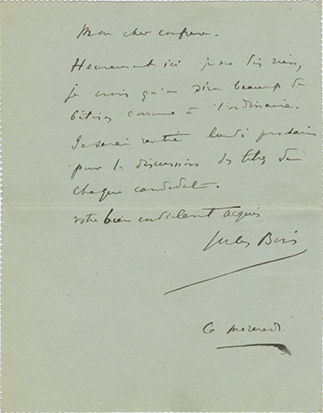 Mon cher confrère.
Heureusement ici je ne dis rien,
je crois qu'on dira beaucoup de
bêtises comme à l'ordinaire.
Je serai rentré lundi prochain
pour la discussion des titres de
chaque candidat.
votre bien cordialement acquis
Jules Bois
Ce mercredi